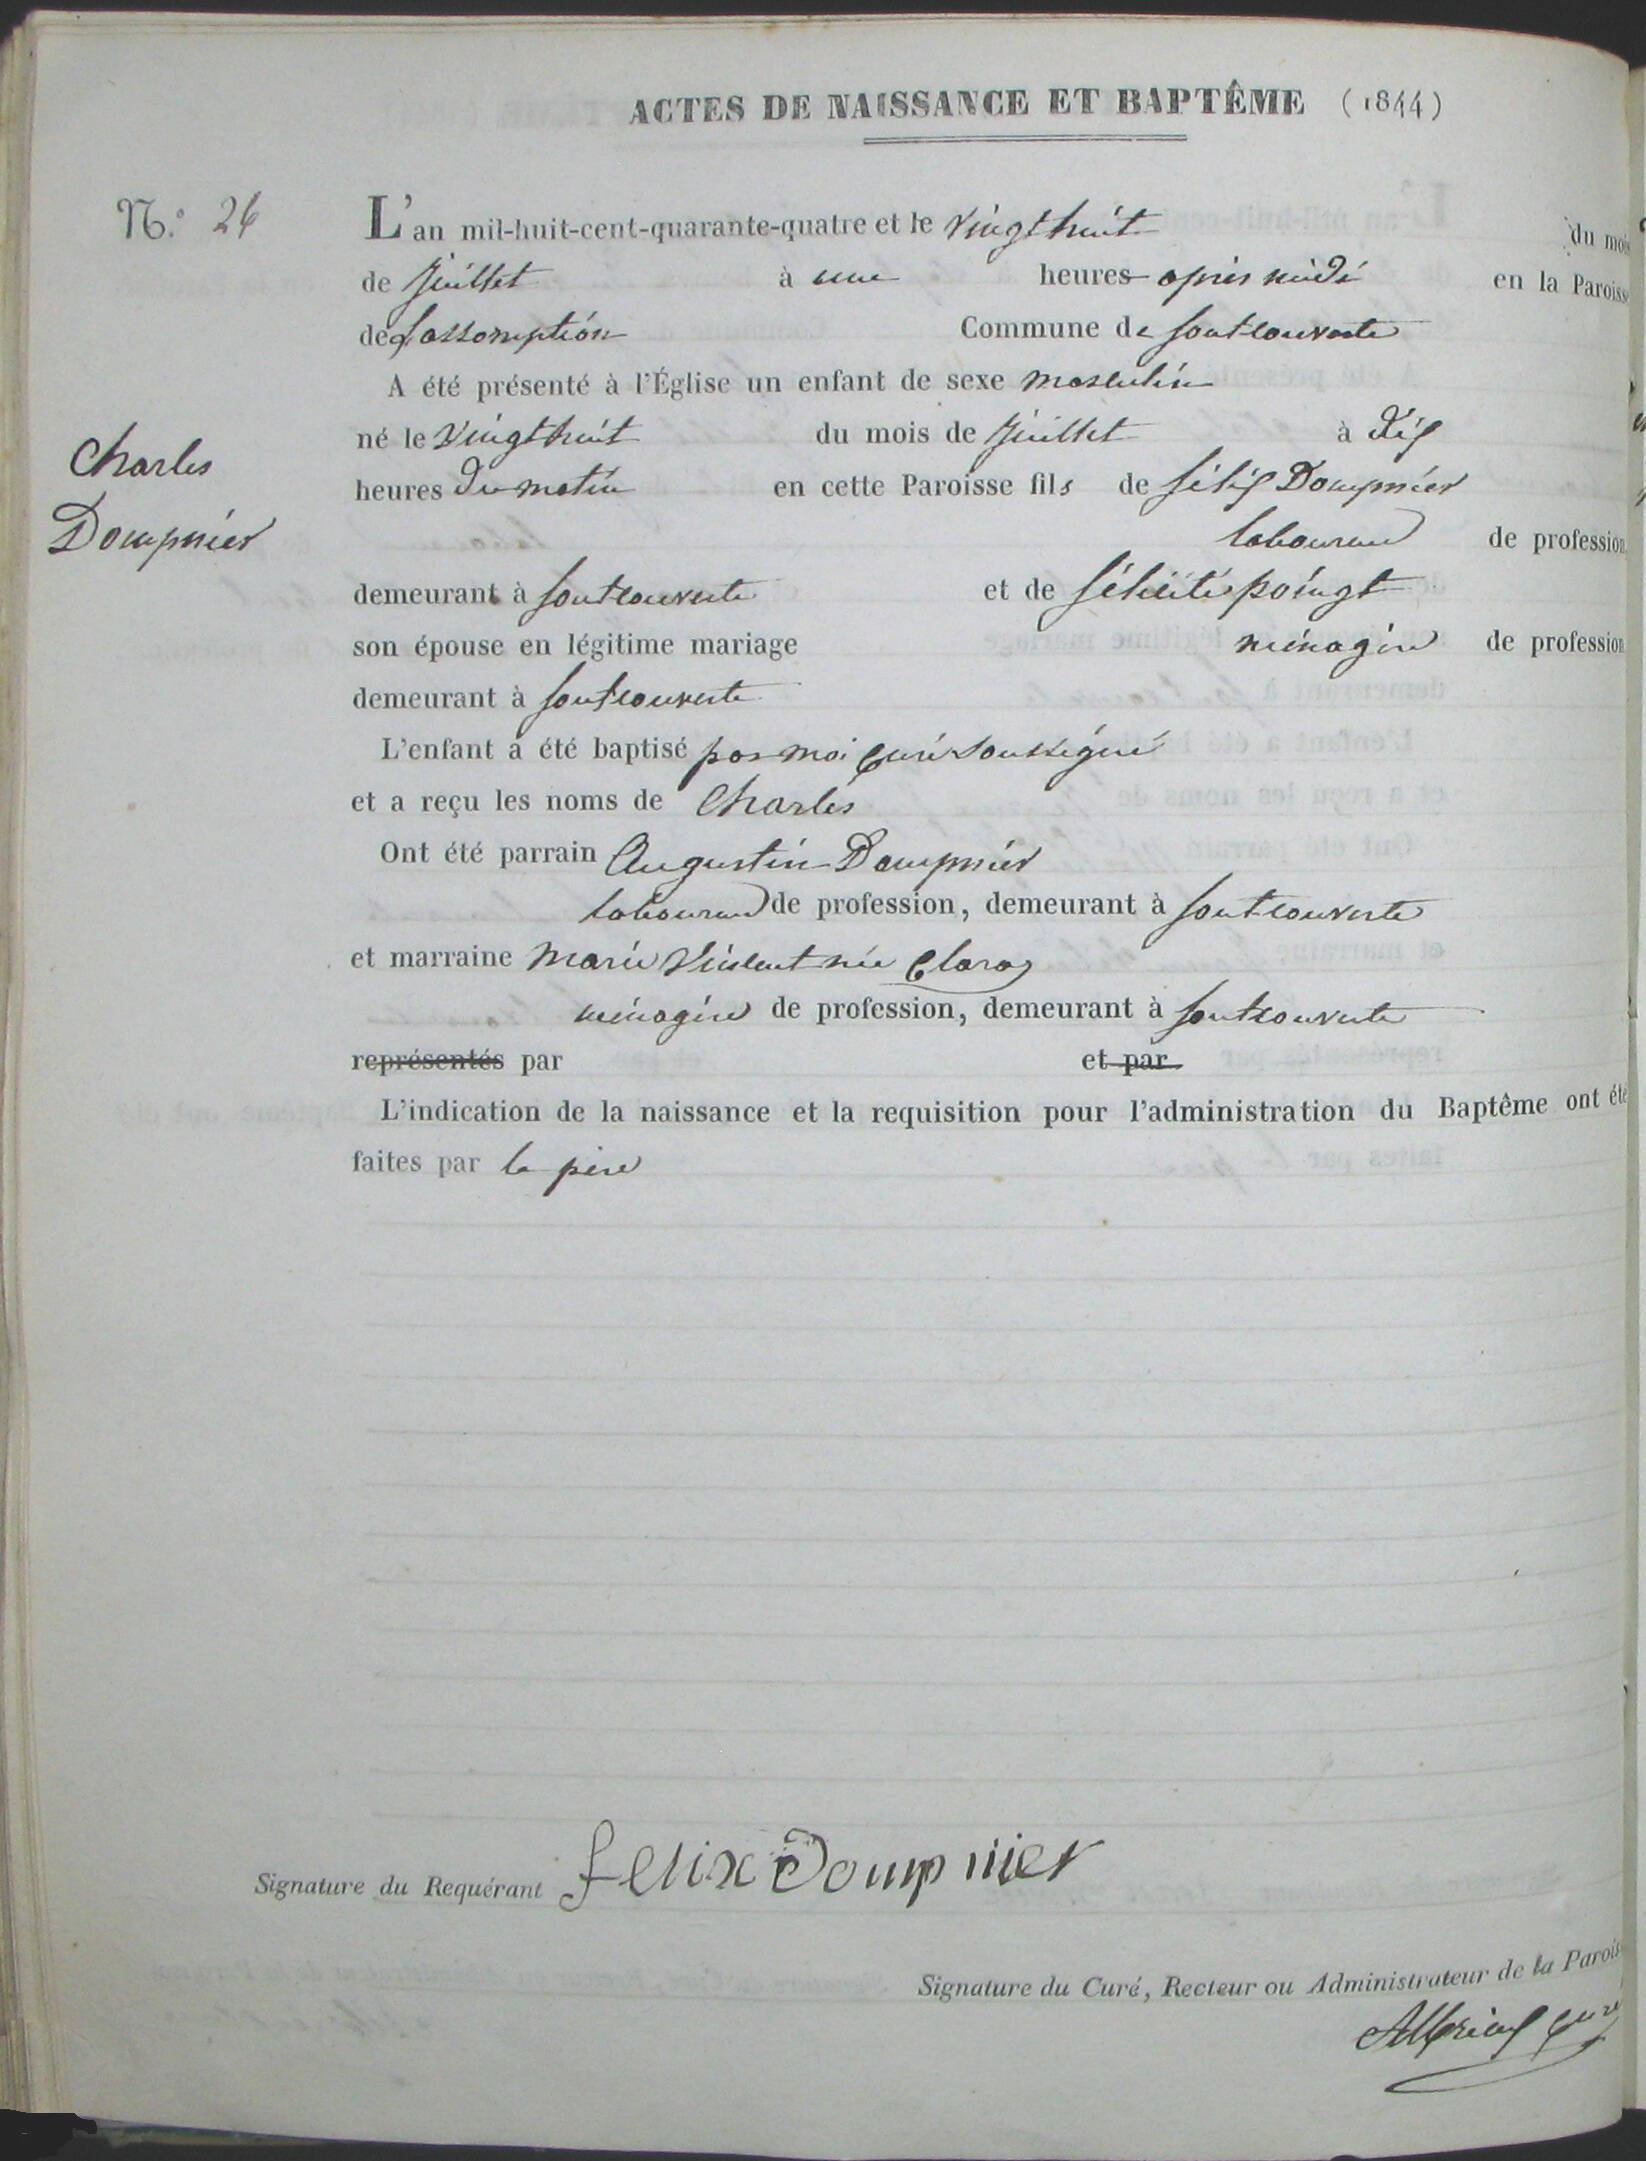 ACTES DE NAISSANCE ET BAPTÊME (1844)
N.º 26
L'an mil-huit-cent-quarante-quatre et le vingt huit du mois
de juillet à une heures après midi en la Paroisse
de Lassomption Commune de fontcouverte
A été présenté à l'Église un enfant de sexe masculin
né le vingt huit du mois de juillet à dix
heures du matin en cette Paroisse fils de félix Dompnier
laboureur de profession
Charles
Dompnier
demeurant à fontcouverte et de félicité poingt
son épouse en légitime mariage ménagère de profession
demeurant à fontcouverte
L'enfant a été baptisé par moi curé soussigné
et a reçu les noms de Charles
Ont été parrain Augustin Dompnier
laboureur de profession, demeurant à fontcouverte
et marraine Marie Vincent née Claraz
ménagère de profession, demeurant à fontcouverte
représentés par et par
L'indication de la naissance et la requisition pour l'administration du Baptême ont été
faites par le père
Signature du Requérant felix Dompnier
Signature du Curé, Recteur ou Administrateur de la Parois
curé